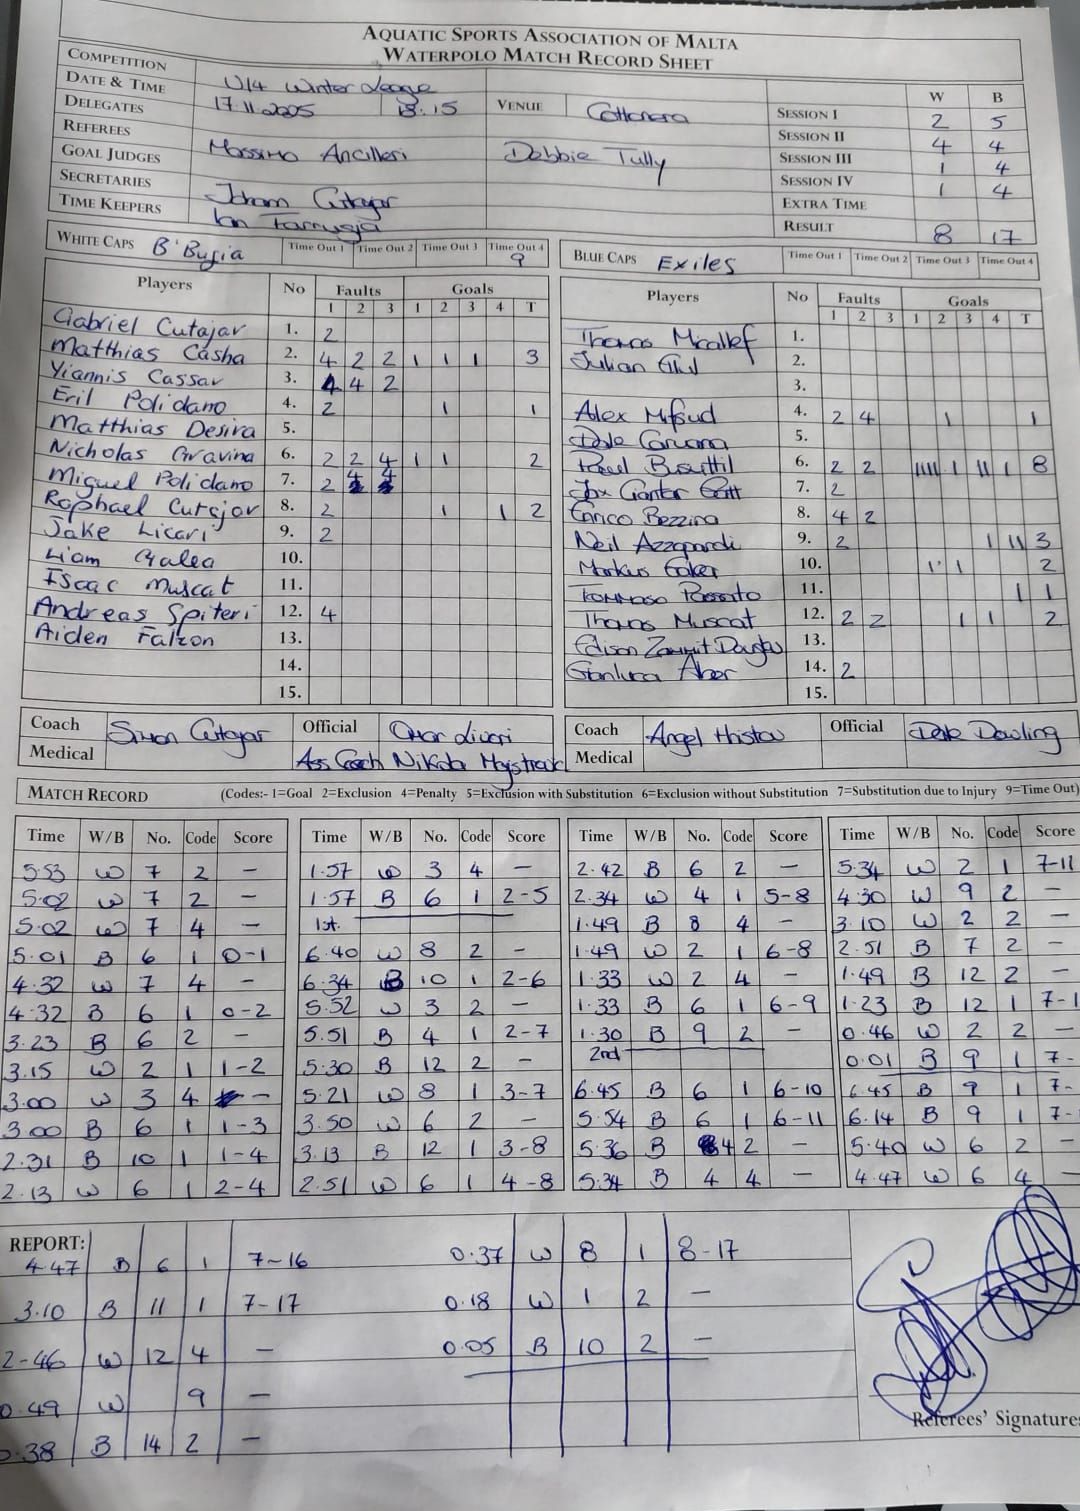 AQUATIC SPORTS ASSOCIATION OF MALTA
WATERPOLO MATCH RECORD SHEET
COMPETITION U14 Winter League
DATE & TIME 17.11.2005 18.15 VENUE Cottonera
DELEGATES
REFEREES Massimo Ancilleri Debbie Tully
GOAL JUDGES
SECRETARIES Joham Cutajar
TIME KEEPERS Ian Farrugia
W B
SESSION I 2 5
SESSION II 4 4
SESSION III 1 4
SESSION IV 1 4
EXTRA TIME
RESULT 8 17
WHITE CAPS B'Bugia Time Out 1 Time Out 2 Time Out 3 Time Out 4 9
BLUE CAPS Exiles Time Out 1 Time Out 2 Time Out 3 Time Out 4
Players No Faults Goals
1 2 3 1 2 3 4 T
Gabriel Cutajar 1. 2
Matthias Casha 2. 4 2 2 1 1 1 3
Yiannis Cassar 3. 4 4 2
Eril Polidano 4. 2 1 1
Matthias Desira 5.
Nicholas Gravina 6. 2 2 4 1 1 2
Miguel Polidano 7. 2 4 4
Raphael Cutajar 8. 2 1 1 2
Jake Licari 9. 2
Liam Galea 10.
Isaac Muscat 11.
Andreas Spiteri 12. 4
Aiden Falzon 13.
14.
15.
Players No Faults Goals
1 2 3 1 2 3 4 T
Thomas Micallef 1.
Julian 2.
3.
Alex Mifsud 4. 2 4 1 1
Dale Caruana 5.
Paul Busuttil 6. 2 2 1111 1 11 1 8
7. 2
Enrico Bezzina 8. 4 2
Neil Azzopardi 9. 2 1 11 3
Markus 10. 1 1 2
Tommaso 11. 1 1
Thomas Muscat 12. 2 2 1 1 2
Edison Zammit Douglas 13.
Gianluca 14. 2
15.
Coach Simon Cutajar Official Omar Licari
Medical Ass Coach Nikola
Coach Angel Official Dowling
Medical
MATCH RECORD (Codes:- 1=Goal 2=Exclusion 4=Penalty 5=Exclusion with Substitution 6=Exclusion without Substitution 7=Substitution due to Injury 9=Time Out)
Time W/B No. Code Score
5.53 W 7 2 –
5.02 W 7 2 –
5.02 W 7 4 –
5.01 B 6 1 0-1
4.32 W 7 4 –
4.32 B 6 1 0-2
3.23 B 6 2 –
3.15 W 2 1 1-2
3.00 W 3 4 –
3.00 B 6 1 1-3
2.31 B 10 1 1-4
2.13 W 6 1 2-4
Time W/B No. Code Score
1.57 W 3 4 –
1.57 B 6 1 2-5
1st.
6.40 W 8 2 –
6.34 B 10 1 2-6
5.52 W 3 2 –
5.51 B 4 1 2-7
5.30 B 12 2 –
5.21 W 8 1 3-7
3.50 W 6 2 –
3.13 B 12 1 3-8
2.51 W 6 1 4-8
Time W/B No. Code Score
2.42 B 6 2 –
2.34 W 4 1 5-8
1.49 B 8 4 –
1.49 W 2 1 6-8
1.33 W 2 4 –
1.33 B 6 1 6-9
1.30 B 9 2 –
2nd
6.45 B 6 1 6-10
5.54 B 6 1 6-11
5.36 B 4 2 –
5.34 B 4 4 –
Time W/B No. Code Score
5.34 W 2 1 7-11
4.30 W 9 2 –
3.10 W 2 2 –
2.51 B 7 2 –
1.49 B 12 2 –
1.23 B 12 1 7-1
0.46 W 2 2 –
0.01 B 9 1 7-
6.45 B 9 1 7-
6.14 B 9 1 7-
5.40 W 6 2 –
4.47 W 6 4 –
REPORT:
4.47 B 6 1 7-16
3.10 B 11 1 7-17
2-46 W 12 4 –
0.49 W 9 –
0.38 B 14 2 –
0.37 W 8 1 8-17
0.18 W 1 2 –
0.05 B 10 2 –
Referees' Signature